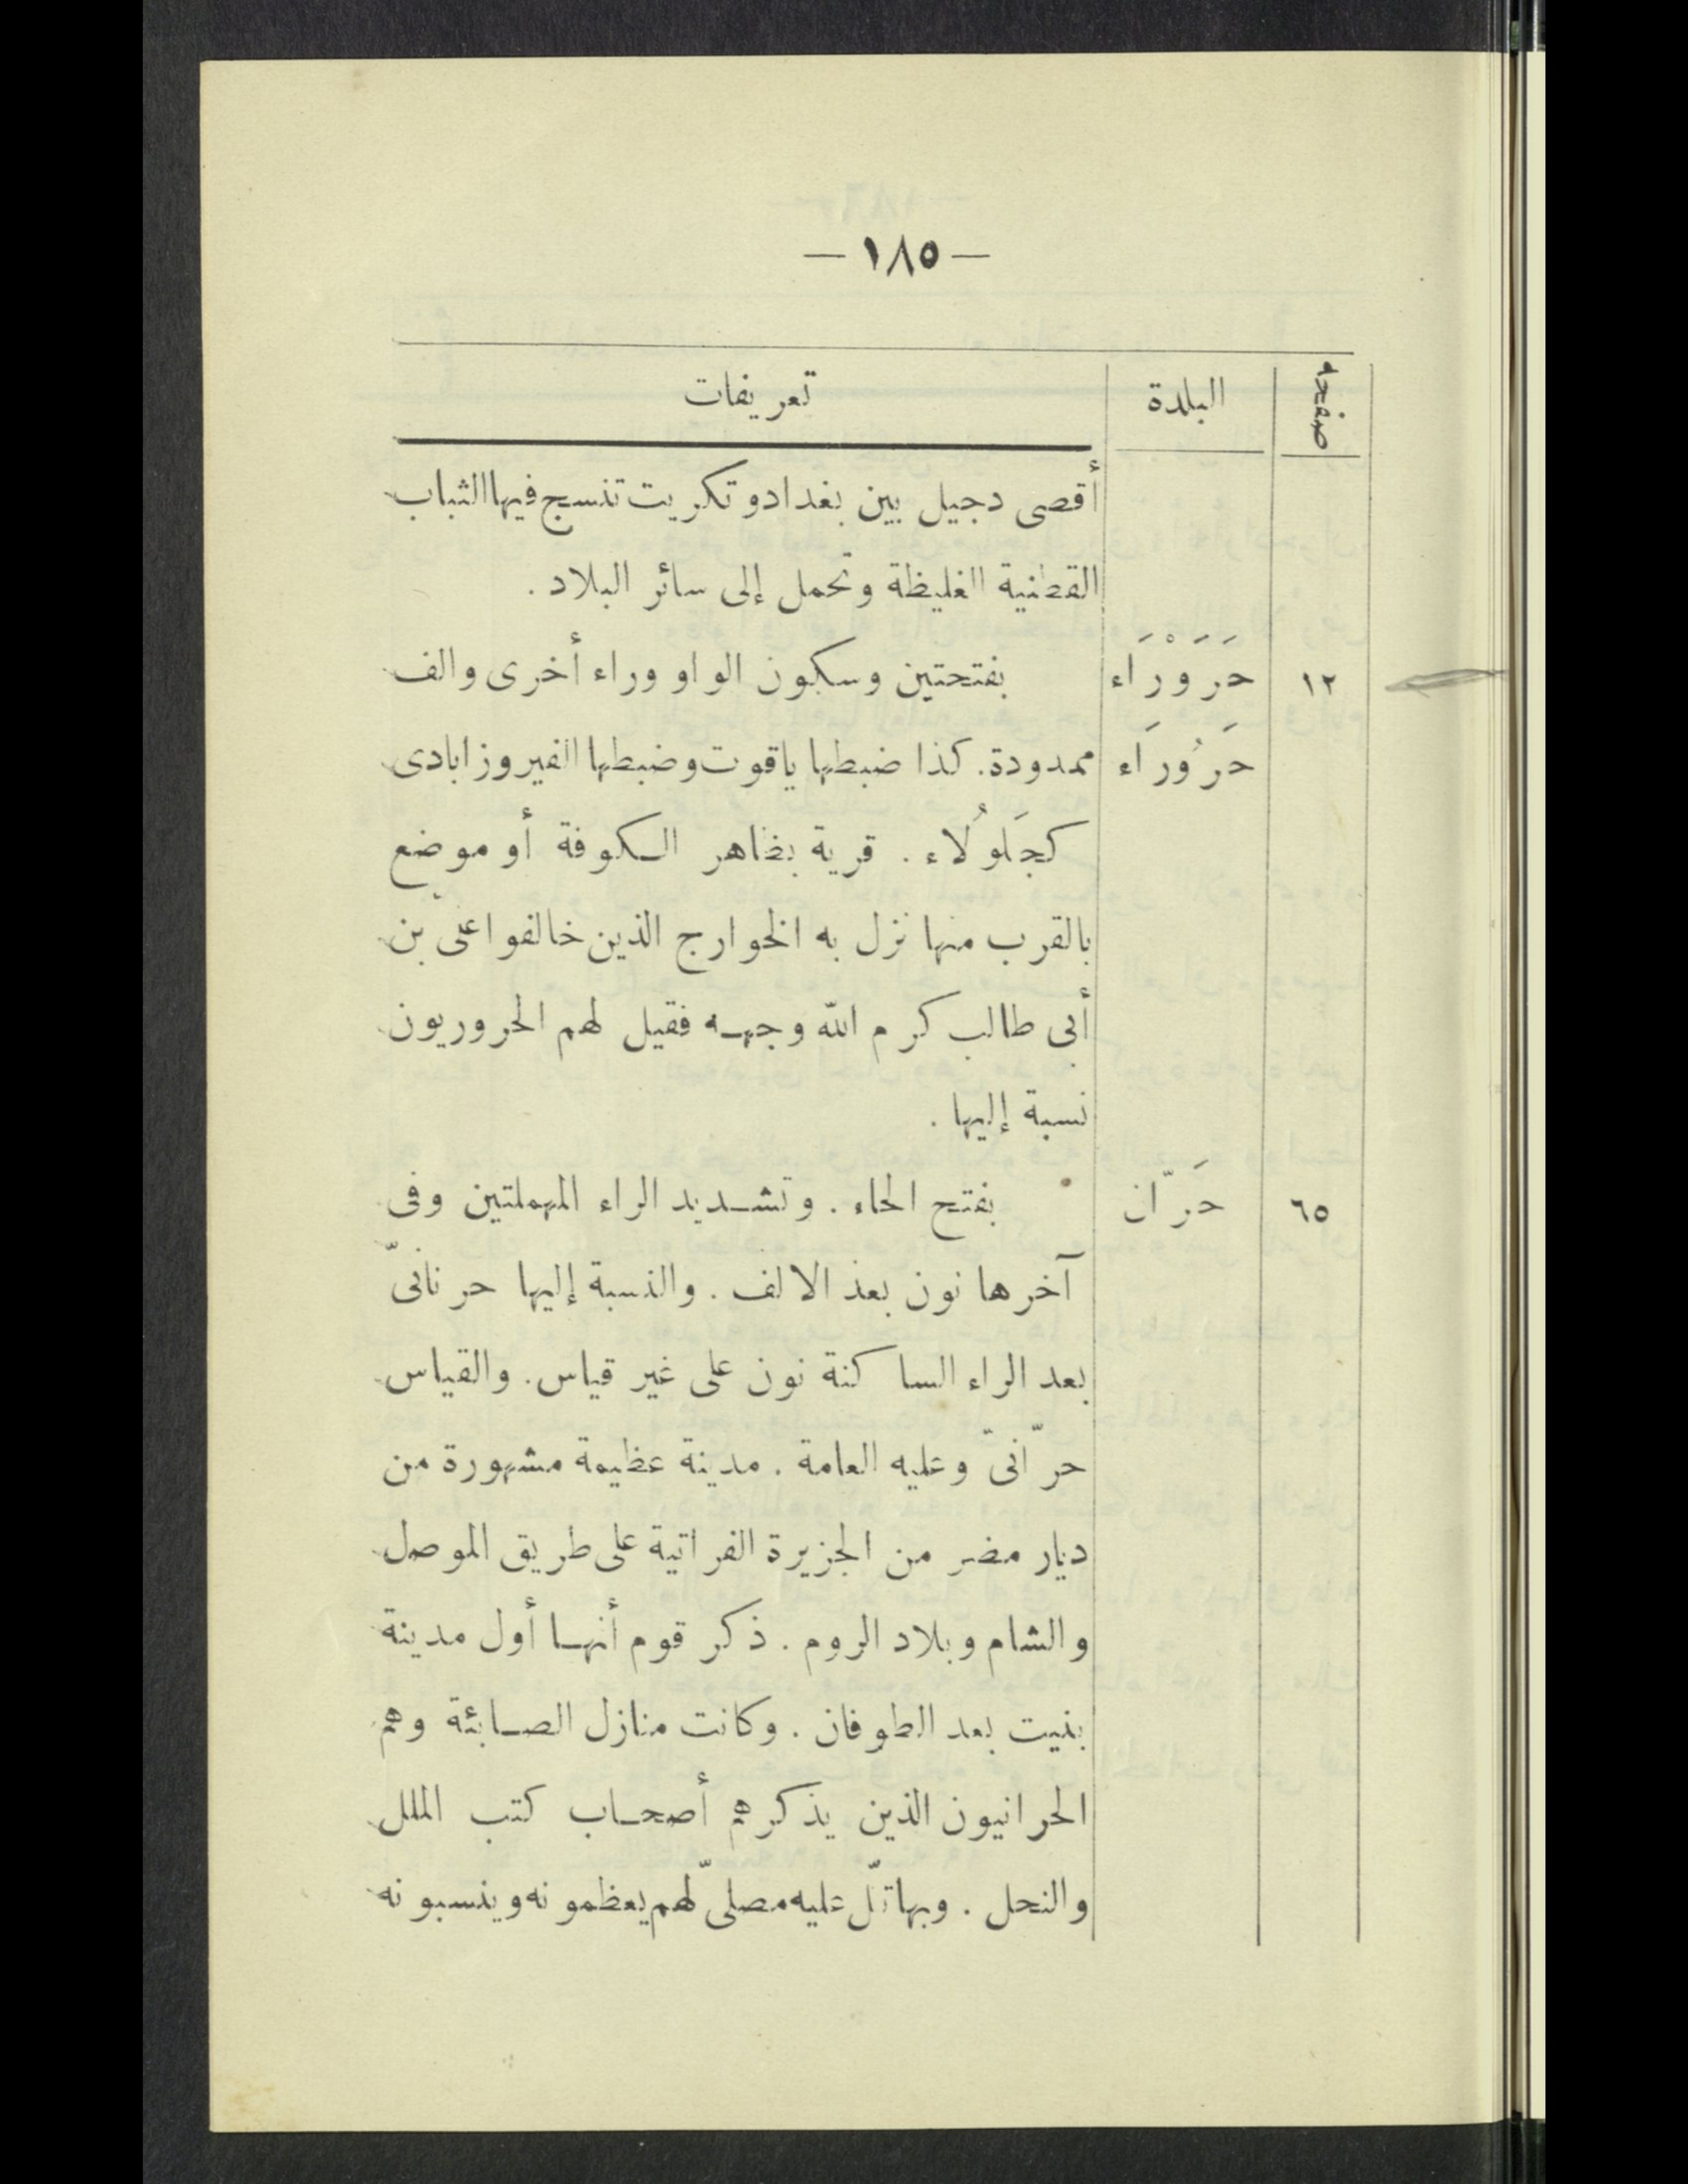 — ١٨٥ —
صفحه البلدة تعريفات
أقصى دجيل بين بغداد وتكريت تنسج فيها الثياب
القطنية الغليظة وتحمل إلى سائر البلاد .
١٢ حَرَوْرَاء بفتحتين وسكون الواو وراء أخرى والف
حَرُورَاء ممدودة. كذا ضبطها ياقوت وضبطها الفيروزابادى
كجَلولُاء . قرية بظاهر الكوفة أو موضع
بالقرب منها نزل به الخوارج الذين خالفوا علىّ بن
أبى طالب كرم الله وجهه فقيل لهم الحروريون
نسبة إليها .
٦٥ حَرّان بفتح الحاء . وتشديد الراء المهملتين وفى
آخرها نون بعد الالف . والنسبة إليها حرنانىّ
بعد الراء الساكنة نون على غير قياس. والقياس
حرّانىّ وعليه العامة . مدينة عظيمة مشهورة من
ديار مضر من الجزيرة الفراتية على طريق الموصل
والشام وبلاد الروم . ذكر قوم أنها أول مدينة
بنيت بعد الطوفان . وكانت منازل الصابئة وهم
الحرانيون الذين يذكرهم أصحاب كتب الملل
والنحل . وبها تلّ عليه مصلىّ لهم يعظمونه وينسبونه